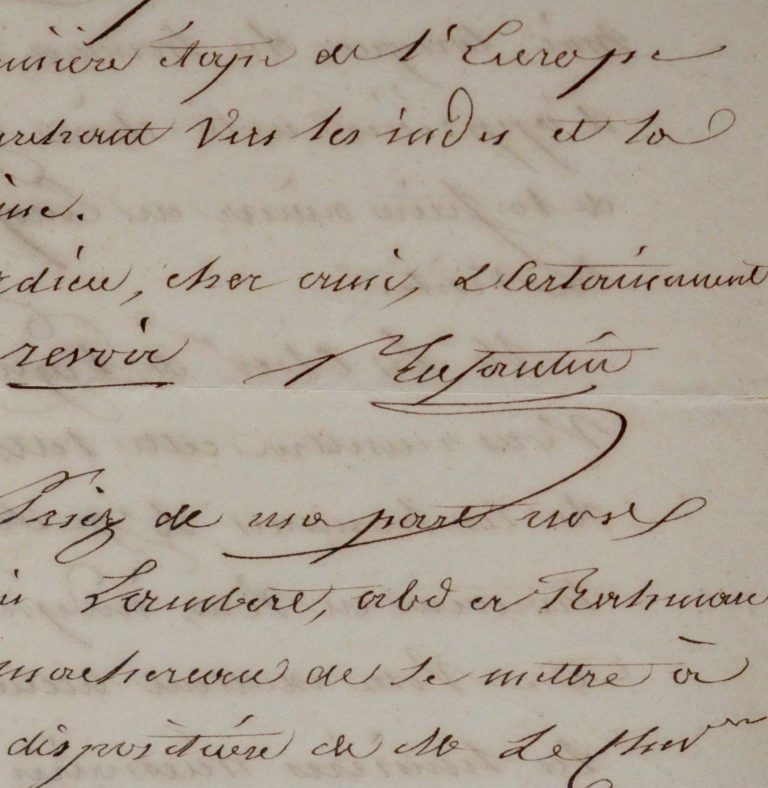 mière étape de l'Europe
marchant vers les indes et la
ine.
adieu, cher ami, & certainement
revoir P Enfantin
Priez de ma part nos
Lambert, abd er Rahman
machereau de se mettre à
disposition de M Le Chev